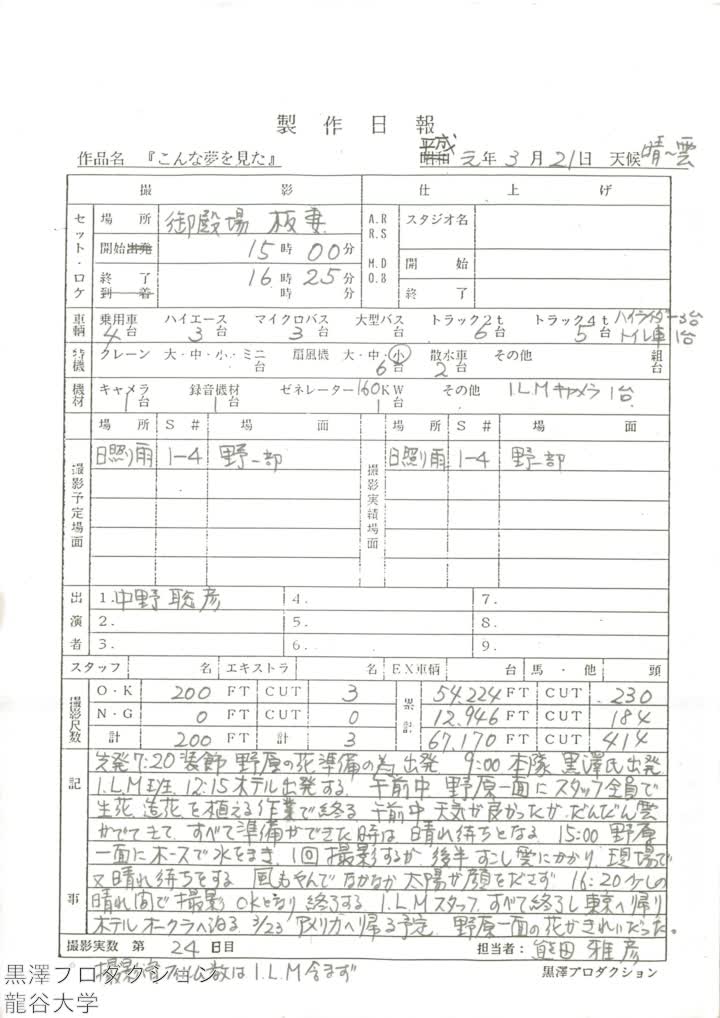 製作日報
作品名 『こんな夢を見た』 平成 元年 3月 21日 天候 晴〜雲
撮影 仕上げ
セット・ロケ 場所 御殿場 板妻 A.R R.S スタジオ名
開始出発 15時 00分 M.D O.8 開始
終了 16時 25分 終了
到着 時 分
車輌 乗用車 4台 ハイエース 3台 マイクロバス 3台 大型バス 台 トラック2t 6台 トラック4t 5台 ハイライダー3台 トイレ車1台
特機 クレーン 大・中・小・ミニ 台 扇風機 大・中・小 6台 散水車 2台 その他 組 台
機材 キャメラ 1台 録音機材 1台 ゼネレーター 160KW 1台 その他 I.L.Mキャメラ 1台
場所 S# 場面 場所 S# 場面
撮影予定場面 日照り雨 1-4 野一部 撮影実績場面 日照り雨 1-4 野一部
出演者 1.中野聡彦 4. 7.
2. 5. 8.
3. 6. 9.
スタッフ 名 エキストラ 名 EX車輌 台 馬・他 頭
撮影尺数 O・K 200 FT CUT 3 累計 54.224 FT CUT 230
N・G 0 FT CUT 0 12.946 FT CUT 184
計 200 FT CUT 3 67.170 FT CUT 414
記事
先発7:20装飾 野原の花準備の為出発 9:00本隊 黒澤氏出発
I.L.M班 12:15ホテル出発する 午前中 野原一面にスタッフ全員で
生花、造花を植える作業で終る 午前中 天気が良かったがだんだん雲
がでてきて、すべて準備ができた時は晴れ待ちとなる 15:00 野原
一面にホースで水をまき、1回撮影するが 後半すこし雲にかかり 現場で
又晴れ待ちをする 風もやんでなかなか太陽が顔をださず 16:20少しの
晴れ間で撮影 OKとなり 終了する。I.L.Mスタッフ、すべて終了し東京へ帰り
ホテルオークラへ泊る。3/23 アメリカへ帰る予定。野原一面の花がきれいだった。
撮影実数 第 24日目 担当者: 熊田雅彦
撮影 数はI.L.M含まず
黒澤プロダクション
黒澤プロダクション
龍谷大学